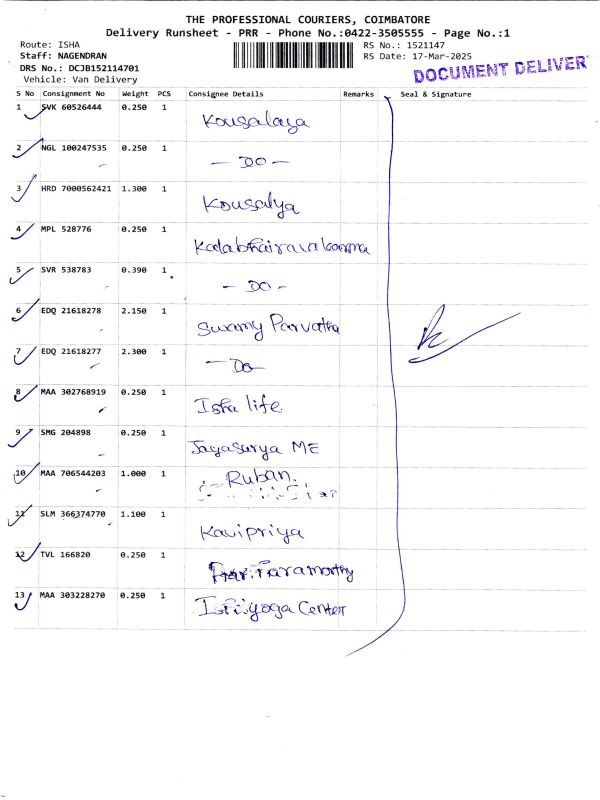 THE PROFESSIONAL COURIERS, COIMBATORE
Delivery Runsheet - PRR - Phone No.:0422-3505555 - Page No.:1
Route: ISHA RS No.: 1521147
Staff: NAGENDRAN RS Date: 17-Mar-2025
DRS No.: DCJB152114701 DOCUMENT DELIVER
Vehicle: Van Delivery
S No Consignment No Weight PCS Consignee Details Remarks Seal & Signature
1 SVK 60526444 0.250 1 Kousalaya
2 NGL 100247535 0.250 1 - DO -
3 HRD 7000562421 1.300 1 Kousalya
4 MPL 528776 0.250 1
5 SVR 538783 0.390 1 - DO -
6 EDQ 21618278 2.150 1 Swamy Parvatha
7 EDQ 21618277 2.300 1 - DO -
8 MAA 302768919 0.250 1 Isha life
9 SMG 204898 0.250 1 Jayasurya ME
10 MAA 706544203 1.000 1 Ruban.
11 SLM 366374770 1.100 1 Kavipriya
12 TVL 166820 0.250 1
13 MAA 303228270 0.250 1 yoga Center